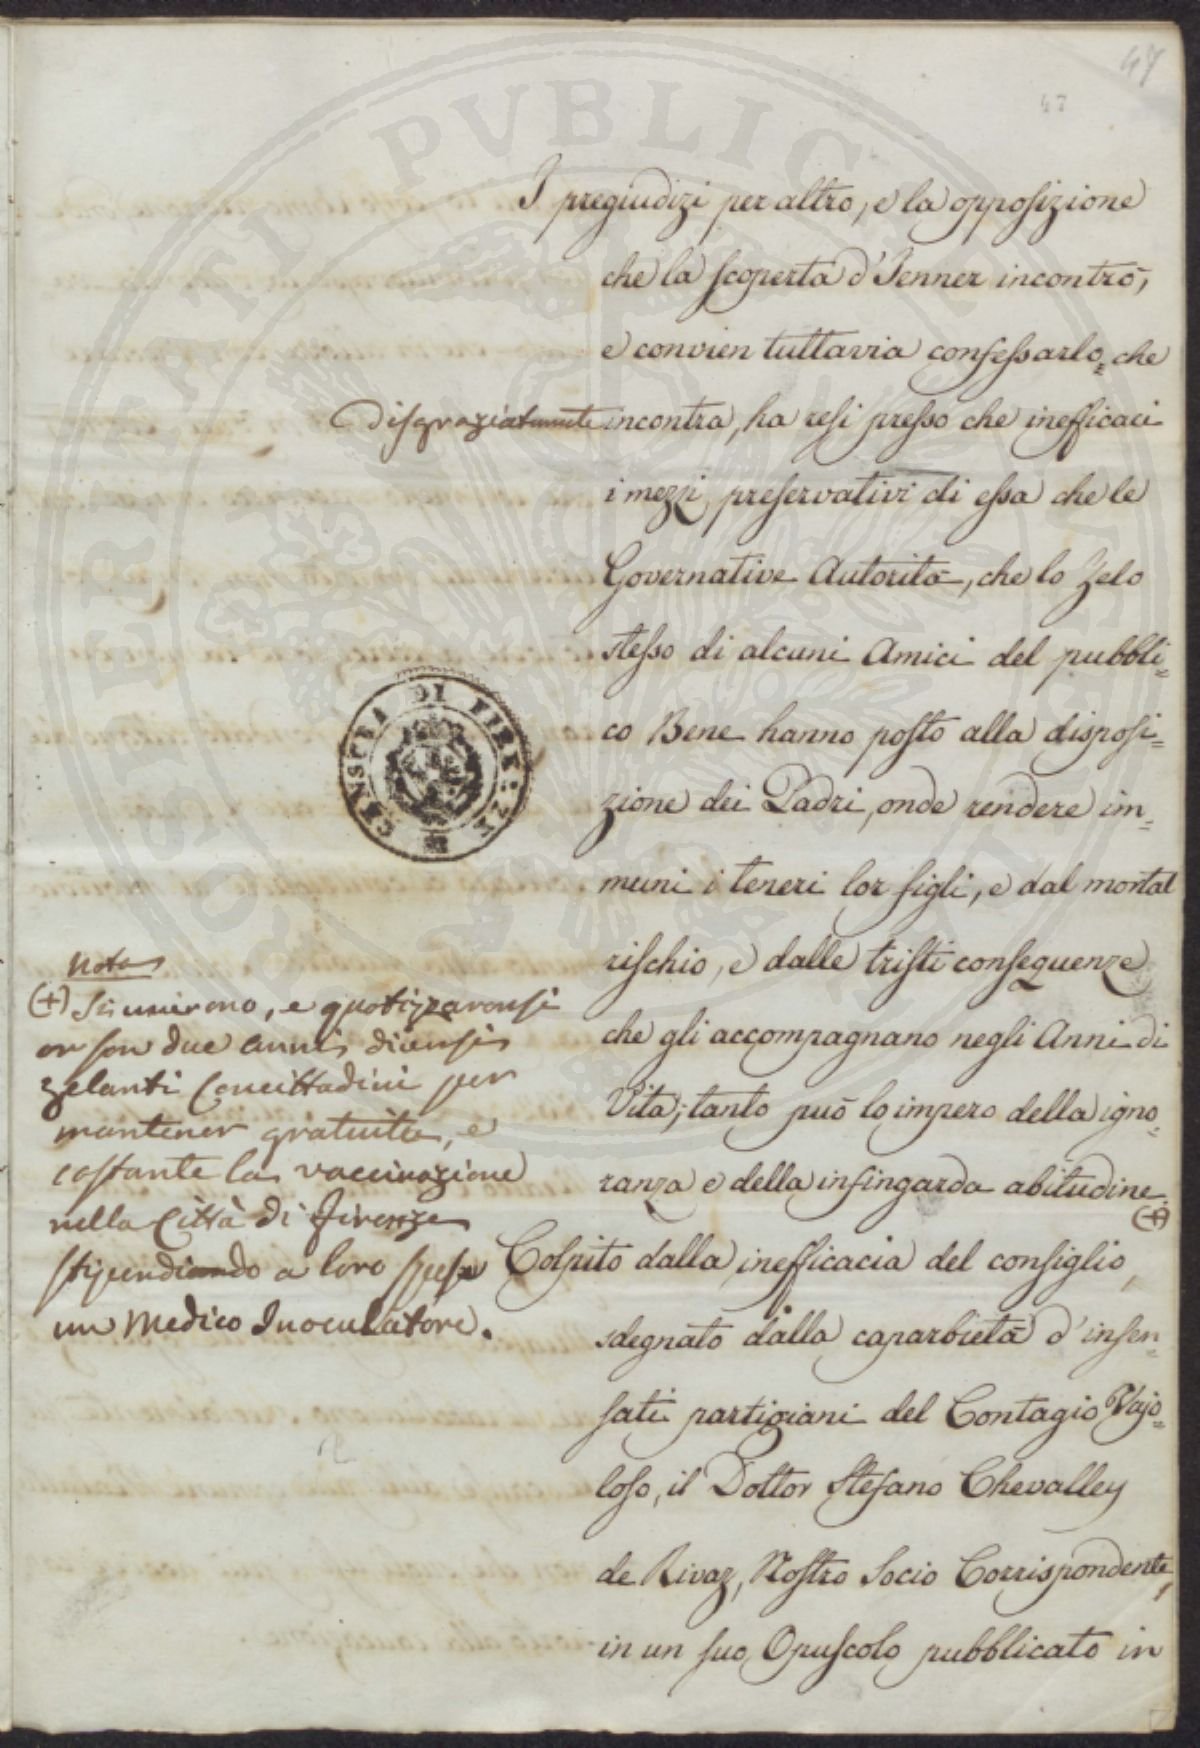 47
47
I pregiudizi per altro, e la opposizione
che la scoperta d'Jenner incontrò,
e convien tuttavia confessarlo, che
disgraziatamente incontra, ha resi presso che inefficaci
i mezzi preservativi di essa che le
Governative Autorità, che lo Zelo
stesso di alcuni Amici del pubbli=
co Bene hanno posto alla disposi=
zione dei Padri, onde rendere im=
muni i teneri lor figli, e dal mortal
rischio, e dalle tristi conseguenze
che gli accompagnano negli Anni di
Vita; tanto può lo impero della igno=
ranza e della infingarda abitudine.
(+)
Colpito dalla inefficacia del consiglio,
sdegnato dalla caparbietà d'insen=
sati partigiani del Contagio Vajo=
loso, il Dottor Stefano Chevalley
de Rivaz, Nostro Socio Corrispondente,
in un suo Opuscolo pubblicato in
Nota
(+) Si unirono, e quotizzaronsi
or son due anni diversi
zelanti Concittadini per
mantener gratuita, e
costante la vaccinazione
nella Città di Firenze
stipendiando a loro spese
un Medico Inoculatore.
CENSURA DI FIRENZE
PROSPERITATI PUBLICAE